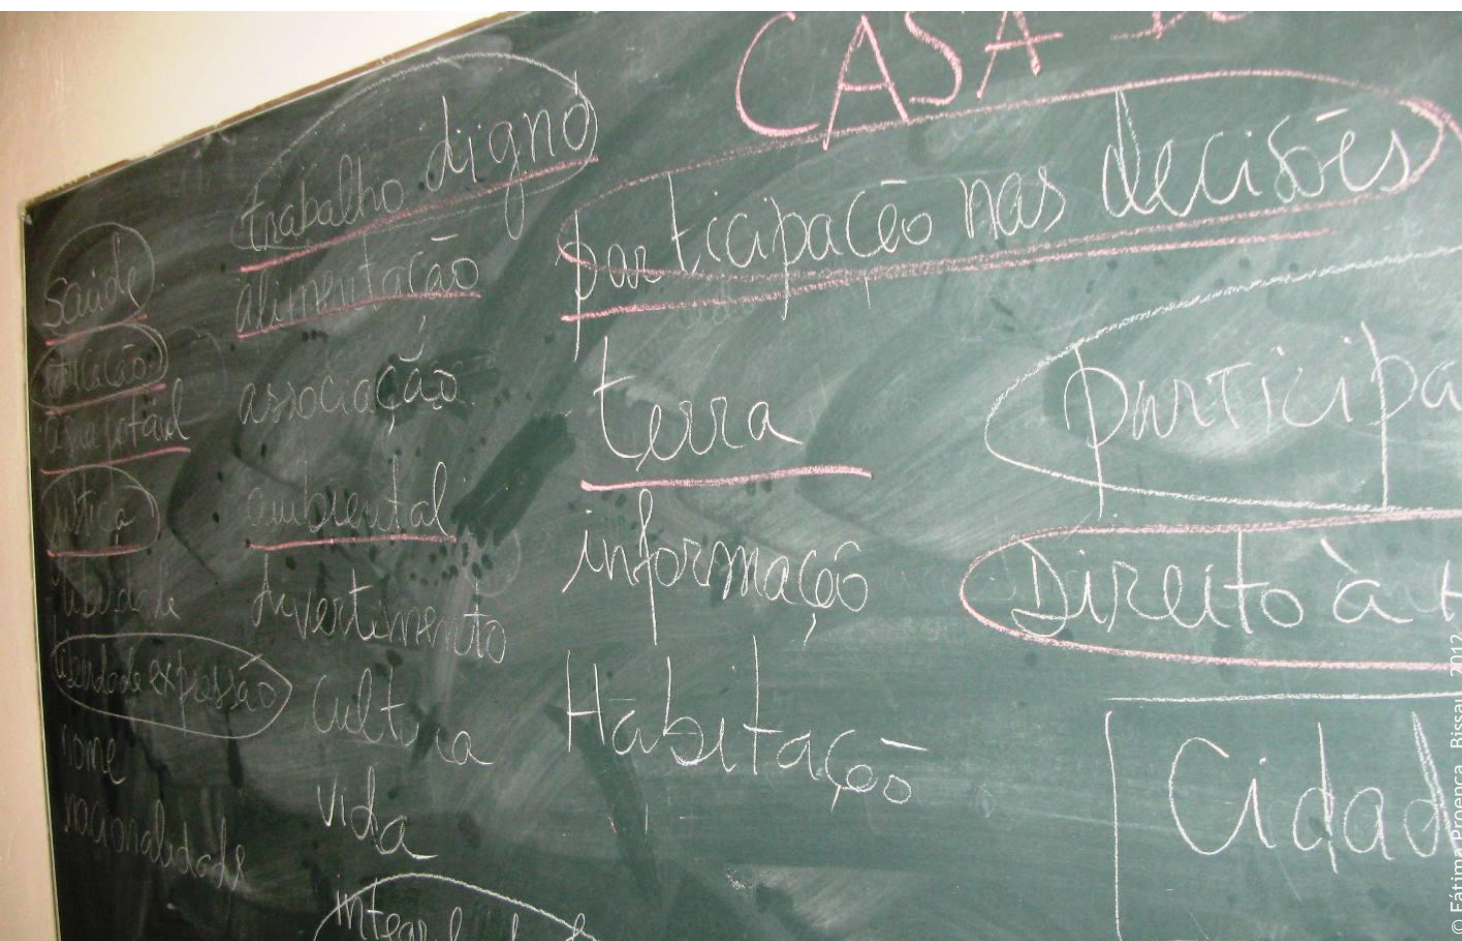 CASA
saúde
educação
agua potavel
justiça
liberdade
liberdade expressão
nome
nacionalidade
trabalho digno
alimentação
associação
ambiental
divertimento
cultura
vida
participação nas decisões
terra
informação
Habitação
participa
Direito à H
Cidad
© Fátima Proença, Bissau, 2012